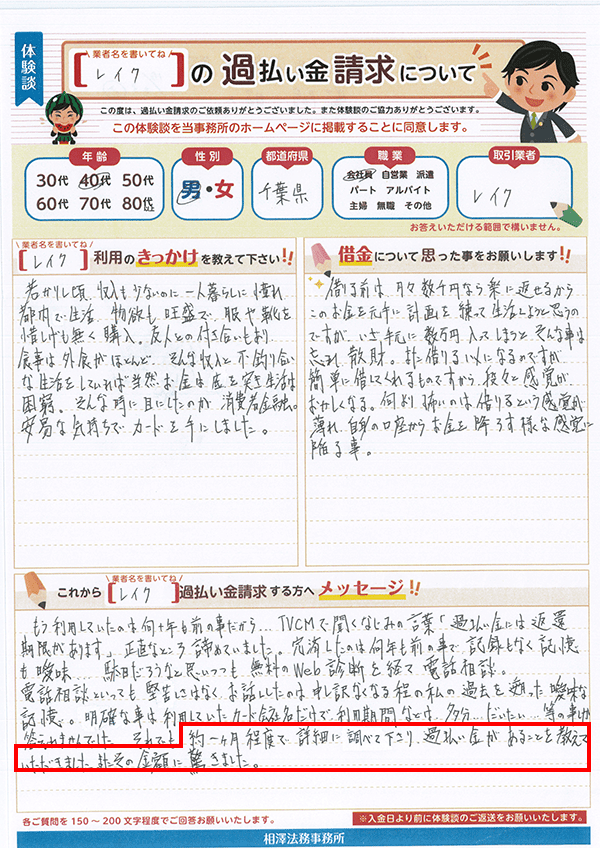 体験談
業者名を書いてね
[レイク]の過払い金請求について
この度は、過払い金請求のご依頼ありがとうございました。また体験談のご協力ありがとうございます。
この体験談を当事務所のホームページに掲載することに同意します。
年齢
30代 40代 50代
60代 70代 80代以上
性別
男・女
都道府県
千葉県
職業
会社員 自営業 派遣
パート アルバイト
主婦 無職 その他
取引業者
レイク
お答えいただける範囲で構いません。
業者名を書いてね
[レイク]利用のきっかけを教えて下さい!!
若かりし頃、収入も少ないのに一人暮らしに憧れ
都内で生活。物欲も旺盛で、服や靴を
惜しげも無く購入。友人との付き合いもあり
食事は外食がほとんど。そんな収入と不釣り合い
な生活をしていれば当然お金は底を突き生活は
困窮。そんな時に目にしたのが消費者金融。
安易な気持ちでカードを手にしました。
借金について思った事をお願いします!!
借りる前は、月々数千円なら楽に返せるから
このお金を元手に計画を練って生活しようと思うの
ですが、いざ手元に数万円入ってしまうとそんな事は
忘れ散財。また借りる以になるのですが
簡単に借してくれるものですから段々と感覚が
おかしくなる。何より怖いのは借りるという感覚が
薄れ、自身の口座からお金を降ろす様な感覚に
陥る事。
業者名を書いてね
これから[レイク]過払い金請求する方へメッセージ!!
もう利用していたのは何十年も前の事だから… TVCMで聞くなじみの言葉「過払い金には返還
期限があります」正直なところ諦めていました。完済したのは何年も前の事で記録もなく記憶
も曖昧… 駄目だろうなと思いつつも無料のWeb診断を経て電話相談。
電話相談といっても堅苦しくはなくお話ししたのは申し訳なくなる程の私の過去を遡った曖昧な
記憶。明確な事は利用していたカード会社名だけで利用期間などは、多分…だいたい…等の事しか
答えれませんでした。それでも約一ヶ月程度で詳細に調べて下さり、過払い金があることを教えて
いただきました。またその金額に驚きました。
各ご質問を150〜200文字程度でご回答お願いいたします。
※入金日より前に体験談のご返送をお願いいたします。
相澤法務事務所